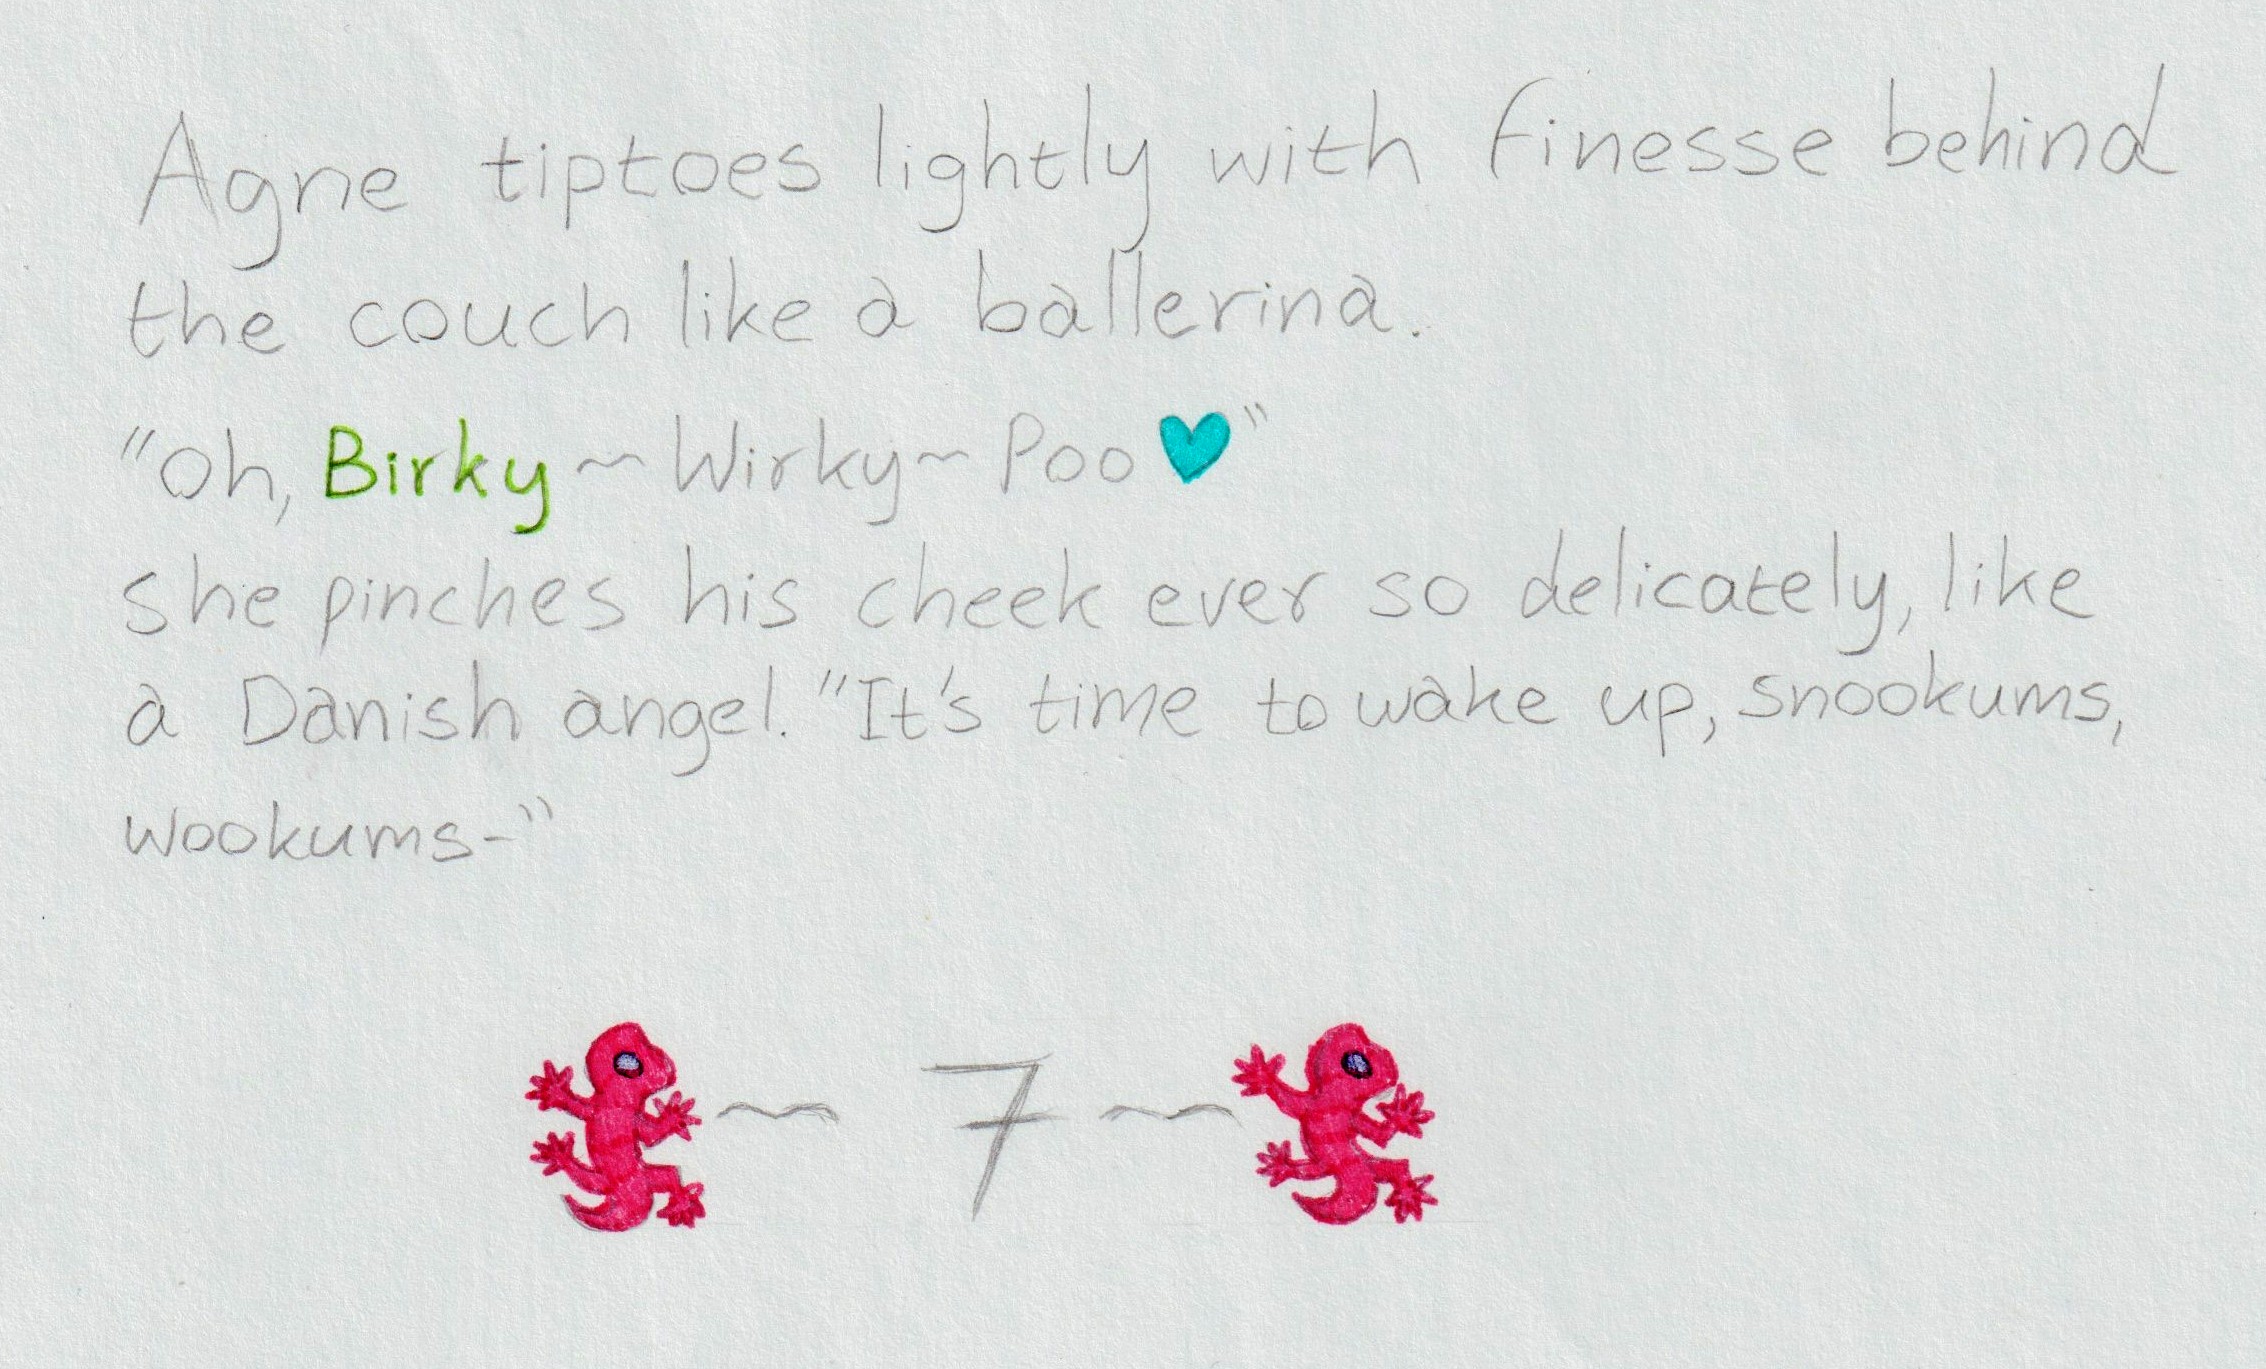 Agne tiptoes lightly with finesse behind
the couch like a ballerina.
"Oh, Birky~Wirky~Poo♥"
she pinches his cheek ever so delicately, like
a Danish angel. "It's time to wake up, snookums,
wookums-"
~ 7 ~